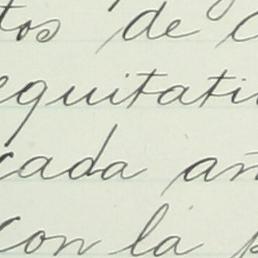 tos de
equitati
cada añ
con la